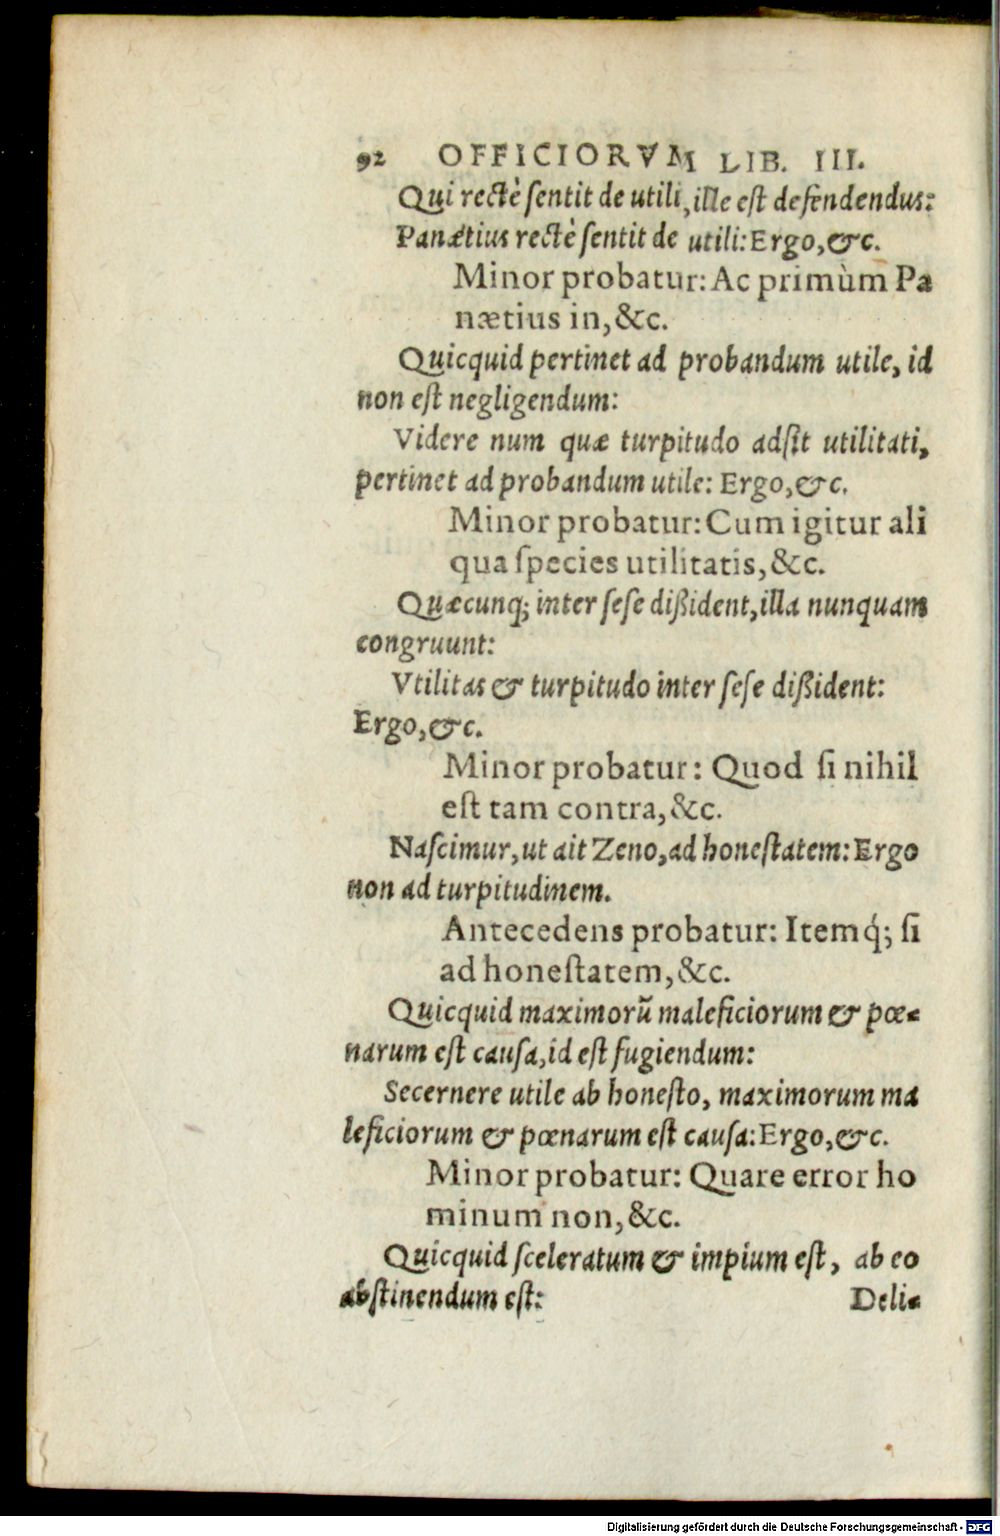 92 OFFICIORVM LIB. III.
Qui rectè ſentit de utili, ille eſt defendendus:
Panætius rectè ſentit de utili: Ergo, &c.
Minor probatur: Ac primùm Pa
nætius in, &c.
Quicquid pertinet ad probandum utile, id
non eſt negligendum:
Videre num quæ turpitudo adſit utilitati,
pertinet ad probandum utile: Ergo, &c.
Minor probatur: Cum igitur ali
qua ſpecies utilitatis, &c.
Quæcunq; inter ſeſe dißident, illa nunquam
congruunt:
Vtilitas & turpitudo inter ſeſe dißident:
Ergo, &c.
Minor probatur: Quod ſi nihil
eſt tam contra, &c.
Naſcimur, ut ait Zeno, ad honeſtatem: Ergo
non ad turpitudinem.
Antecedens probatur: Itemq́; ſi
ad honeſtatem, &c.
Quicquid maximorũ maleficiorum & pœ-
narum eſt cauſa, id eſt fugiendum:
Secernere utile ab honeſto, maximorum ma
leficiorum & pœnarum eſt cauſa: Ergo, &c.
Minor probatur: Quare error ho
minum non, &c.
Quicquid ſceleratum & impium eſt, ab eo
abſtinendum eſt: Deli-
Digitalisierung gefördert durch die Deutsche Forschungsgemeinschaft - DFG